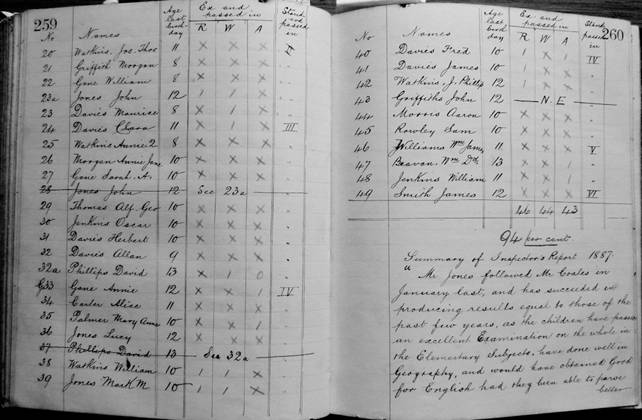 259
No Names Age last birthday Ex and passed in R W A Stand passed in
20 Watkins, Jos. Thos 11 x x x I
21 Griffith Morgan 8 x x x "
22 Gane William 8 x x x "
23a Jones John 12 1 1 x "
23 Davies Maurice 8 x 1 x "
24 Davies Clara 11 x 1 x III
25 Watkins Annie 2 8 x x x "
26 Morgan Annie Jane 10 x x x "
27 Gane Sarah A. 10 x x x "
28 Jones John 12 See 23a
29 Thomas Alf. Geo 10 x x x "
30 Jenkins Oscar 10 x x x "
31 Davies Herbert 10 x x x "
32 Davies Allan 9 x x x "
32a Phillips David 13 x 1 0 "
G33 Gane Annie 12 x x 1 IV
34 Carter Alice 11 x x x "
35 Palmer Mary Anne 10 x x 1 "
36 Jones Lucy 12 x x x "
37 Phillips David 13 See 32a
38 Watkins William 10 1 1 x "
39 Jones Mark M 10 1 1 x "
260
No Names Age last birthday Ex and passed in R W A Stand passed in
40 Davies Fred 10 1 x x IV
41 Davies James 10 x x "
42 Watkins, J. Phillip 12 x x "
43 Griffiths John 12 N E
44 Morris Aaron 10 x x x "
45 Rowley Sam 10 x x x "
46 Williams Wm James 11 x x x V
47 Beavan, Wm Dd 13 x x x "
48 Jenkins William 11 x x 1 "
49 Smith James 12 x x x VI
46 44 43
94 per cent
Summary of Inspector's Report 1887.
"Mr Jones followed Mr Coales in
January last, and has succeeded in
producing results equal to those of the
past few years, as the children have passed
an excellent Examination on the whole in
the Elementary Subjects, have done well in
Geography, and would have obtained Good
for English had they been able to parse
better